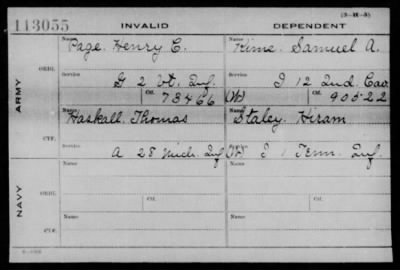 (3-H-5)
113055 INVALID DEPENDENT
Name Page, Henry C. Name Hime, Samuel A.
ORIG.
Service G 2 Vt. Inf. Service I 12 Ind. Cav.
Ctf. 73466 (W) Ctf. 90522
ARMY
Name Haskall, Thomas Name Staley, Hiram
CTF.
A 28 Mich. Inf (W) I 1 Tenn. Inf.
Name Name
ORIG.
Service Service
Ctf. Ctf.
NAVY
Name Name
CTF.